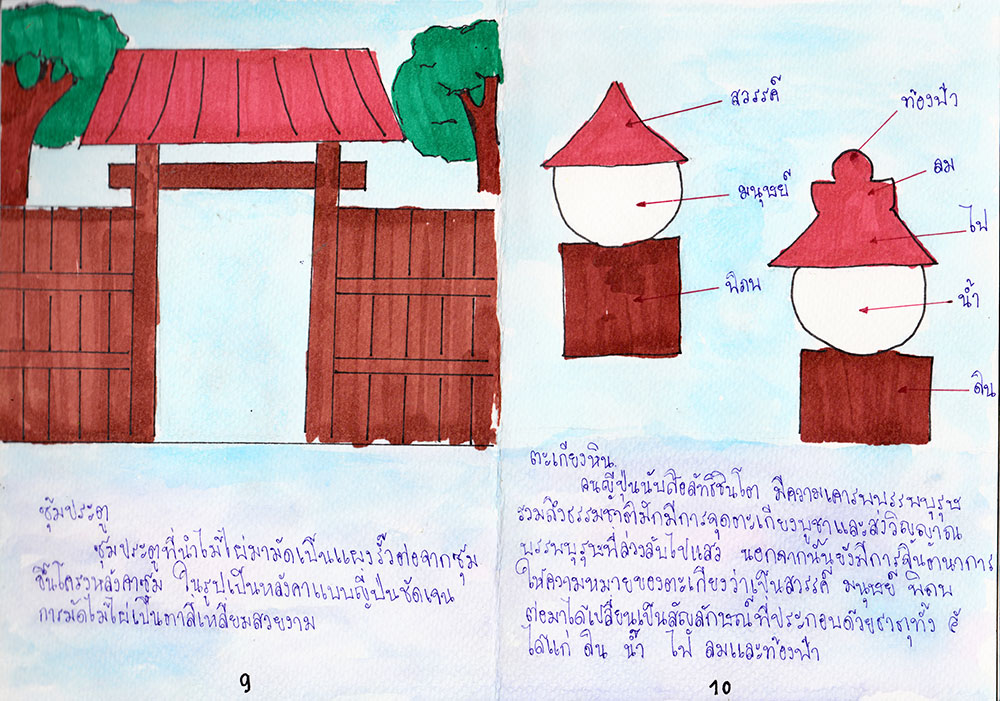 ซุ้มประตู
ซุ้มประตูที่นำไม้ไผ่มามัดเป็นแผงรั้วต่อจากซุม
ขึ้นโครงหลังคาซุ้ม ในรูปเป็นหลังคาแบบญี่ปุ่นชัดเจน
การมัดไม้ไผ่เป็นตาสี่เหลี่ยมสวยงาม
9
สวรรค์
มนุษย์
พิภพ
ท้องฟ้า
ลม
ไฟ
น้ำ
ดิน
ตะเกียงหิน
คนญี่ปุ่นนับถือลัทธิชินโต มีความเคารพบรรพบุรุษ
รวมถึงธรรมชาติมักมีการจุดตะเกียงบูชาและส่งวิญญาณ
บรรพบุรุษที่ล่วงลับไปแล้ว นอกจากนั้นยังมีการจินตนาการ
ให้ความหมายของตะเกียงว่าเป็นสวรรค์ มนุษย์ พิภพ
ต่อมาได้เปลี่ยนเป็นสัญลักษณ์ที่ประกอบด้วยธาตุทั้ง ๕
ได้แก่ ดิน น้ำ ไฟ ลมและท้องฟ้า
10